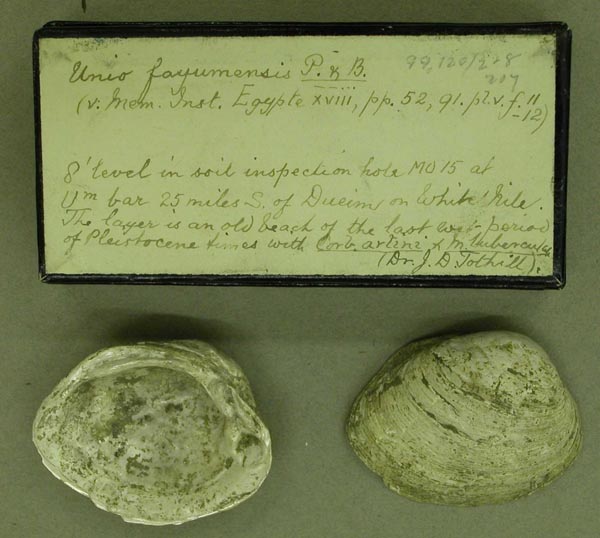 Unio fayumensis P. & B.
(v. Mem. Inst. Egypte xviii, pp. 52, 91. pl. v. f. 11
-12)
8' level in soil inspection hole MO 15 at
Um bar 25 miles S. of Dueim on White Nile.
The layer is an old beach of the last wet-period
of Pleistocene times with Corb. artini & M. tuberculata
(Dr. J. D. Tothill).